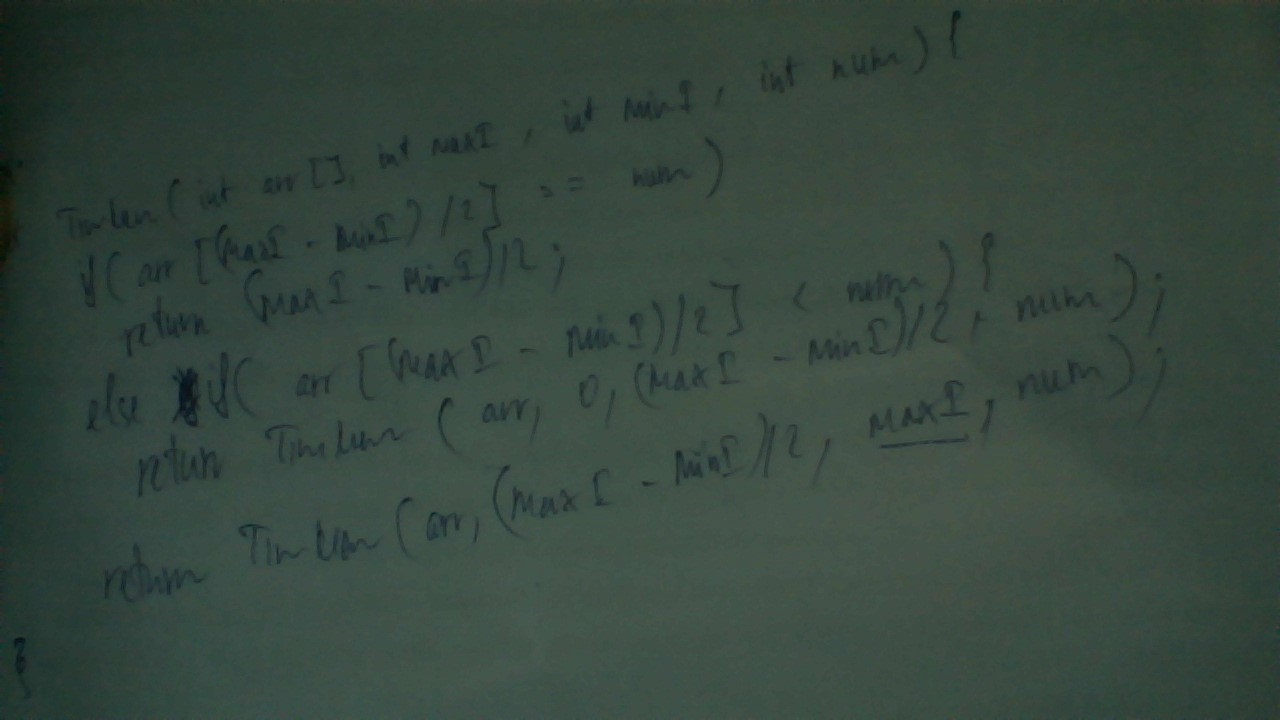 Timkem(int arr[], int maxI, int minI, int num) {
if(arr[(maxI - minI)/2] == num)
return (maxI - minI)/2;
else if(arr[(maxI - minI)/2] < num) {
return Timkem(arr, 0, (maxI - minI)/2, num);
return Timkem(arr, (maxI - minI)/2, maxI, num);
}